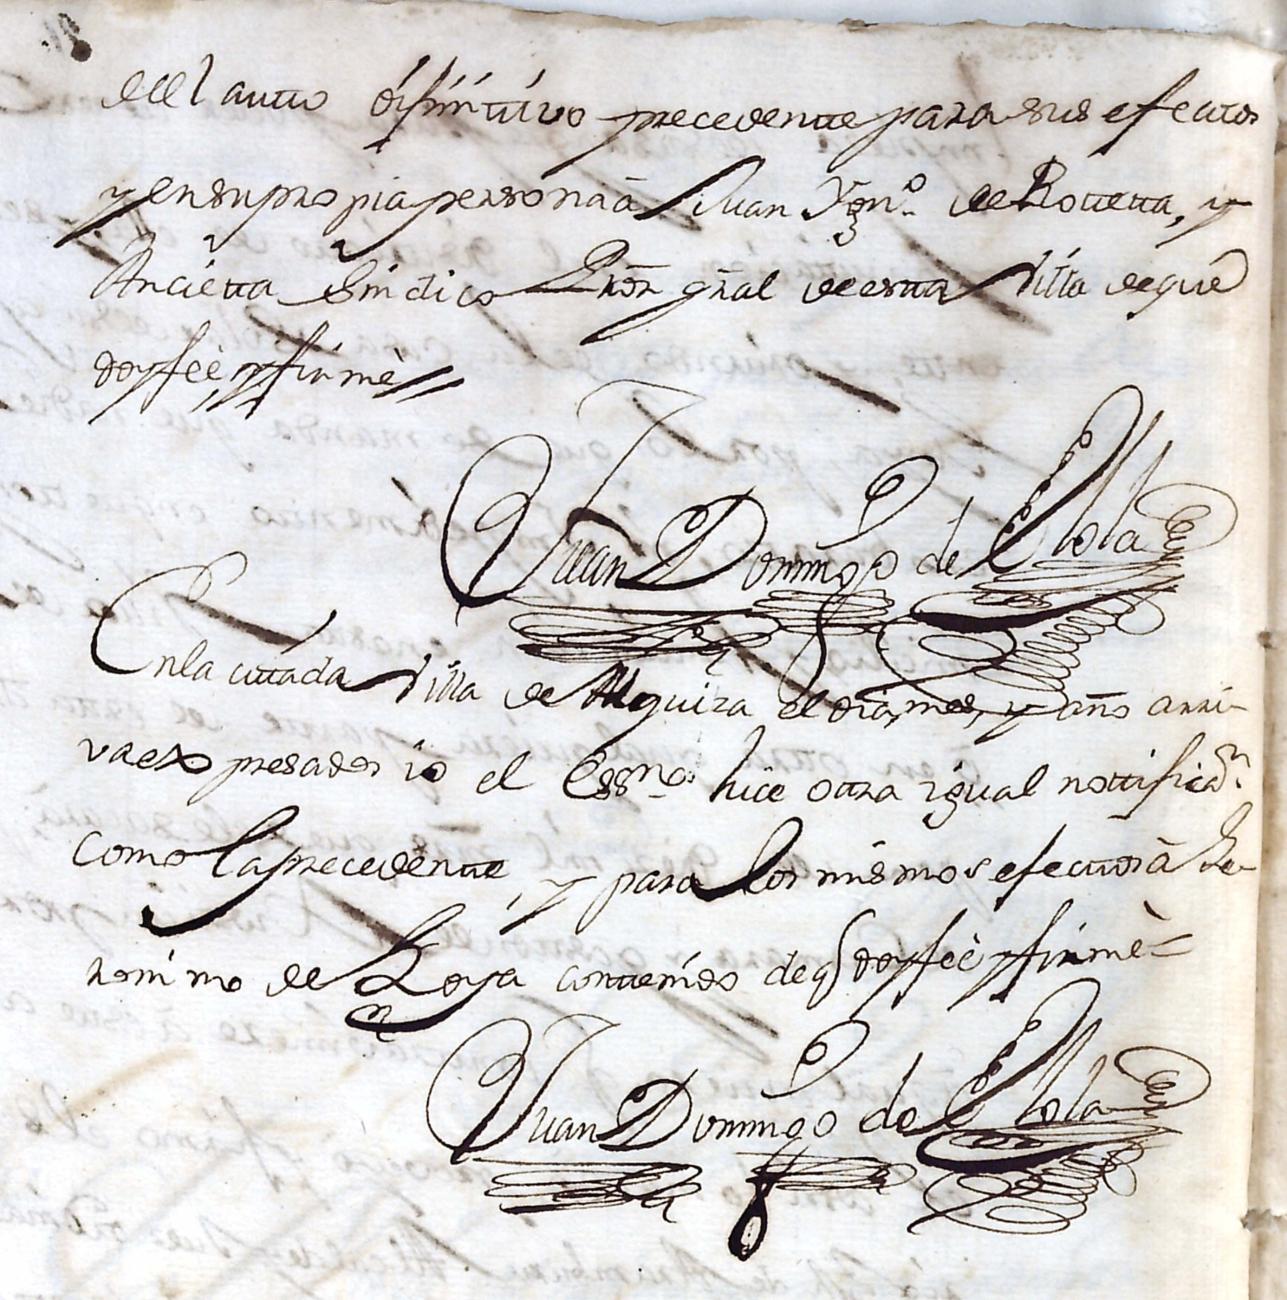 de el autto difinittivo precedentte para sus efectos
y en su propia persona â Juan Ygn.º de Rottetta, y
Ancietta Síndico Pror gral de estta Villa de que
doy feè, y firmè
Juan Domingo de Olola
En la cittada Villa de Alquiza el dia, mes, y año arri-
va expresados io el Essno. hice ottra igual nottificaon
como la precedentte, y para los mismos efecttos â Ge-
ronimo de Loya conttenido de q doy feè y firmè
Juan Domingo de Olola